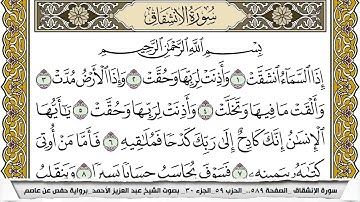 سُورَةُ الِانشِقَاقِ
بِسْمِ اللَّهِ الرَّحْمَٰنِ الرَّحِيمِ
إِذَا السَّمَاءُ انشَقَّتْ ١ وَأَذِنَتْ لِرَبِّهَا وَحُقَّتْ ٢ وَإِذَا الْأَرْضُ مُدَّتْ ٣
وَأَلْقَتْ مَا فِيهَا وَتَخَلَّتْ ٤ وَأَذِنَتْ لِرَبِّهَا وَحُقَّتْ ٥ يَا أَيُّهَا
الْإِنسَانُ إِنَّكَ كَادِحٌ إِلَىٰ رَبِّكَ كَدْحًا فَمُلَاقِيهِ ٦ فَأَمَّا مَنْ أُوتِيَ
كِتَابَهُ بِيَمِينِهِ ٧ فَسَوْفَ يُحَاسَبُ حِسَابًا يَسِيرًا ٨ وَيَنقَلِبُ
سورة الإنشقاق_ الصفحة ٥٨٩_ الحزب ٥٩_الجزء ٣٠_ بصوت الشيخ عبد العزيز الأحمد_برواية حفص عن عاصم